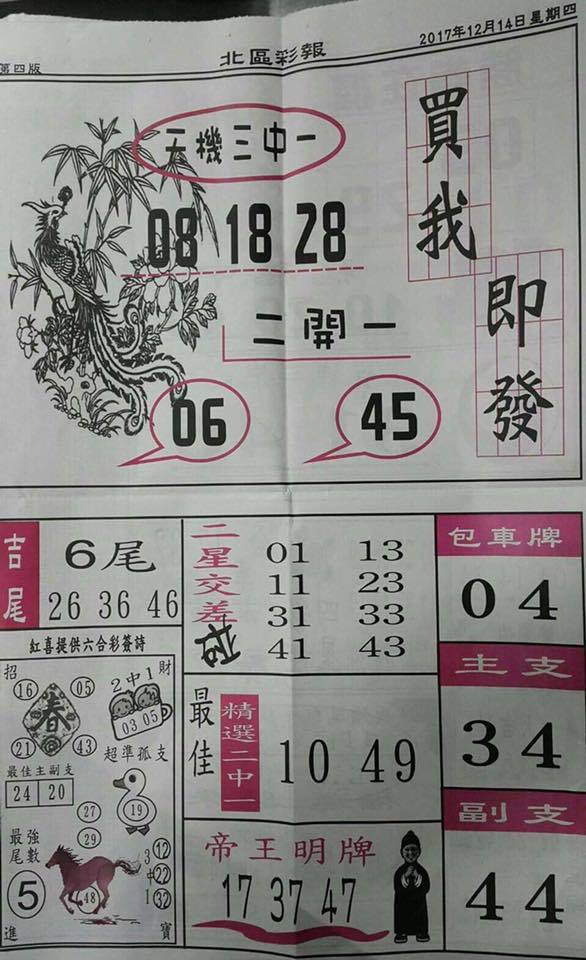 第四版
北區彩報
2017年12月14日星期四
天機三中一
08 18 28
二開一
06 45
買我
即發
吉尾
6尾
26 36 46
二星交差
01 13
11 23
31 33
41 43
包車牌
04
主支
34
副支
44
紅喜提供六合彩簽詩
招 財
16 05
春
21 43
2中1
03 05
最佳主副支
24 20
超準孤支
19
27
29
最強尾數
5
48
3中1
12
22
32
進 寶
最佳
精選二中一
10 49
帝王明牌
17 37 47